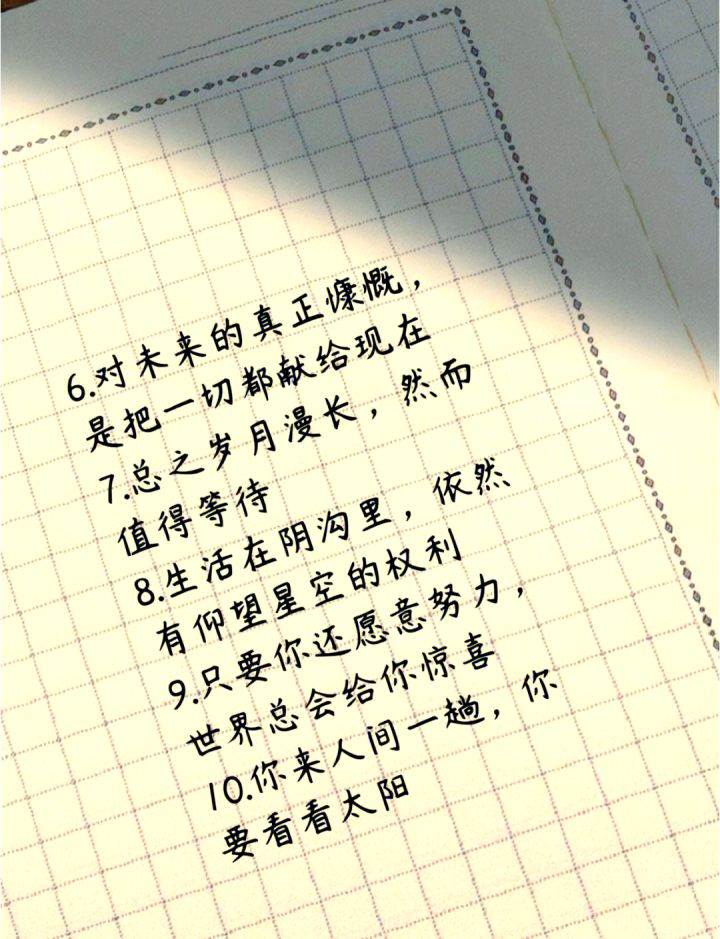 6.对未来的真正慷慨，
是把一切都献给现在
7.总之岁月漫长，然而
值得等待
8.生活在阴沟里，依然
有仰望星空的权利
9.只要你还愿意努力，
世界总会给你惊喜
10.你来人间一趟，你
要看看太阳